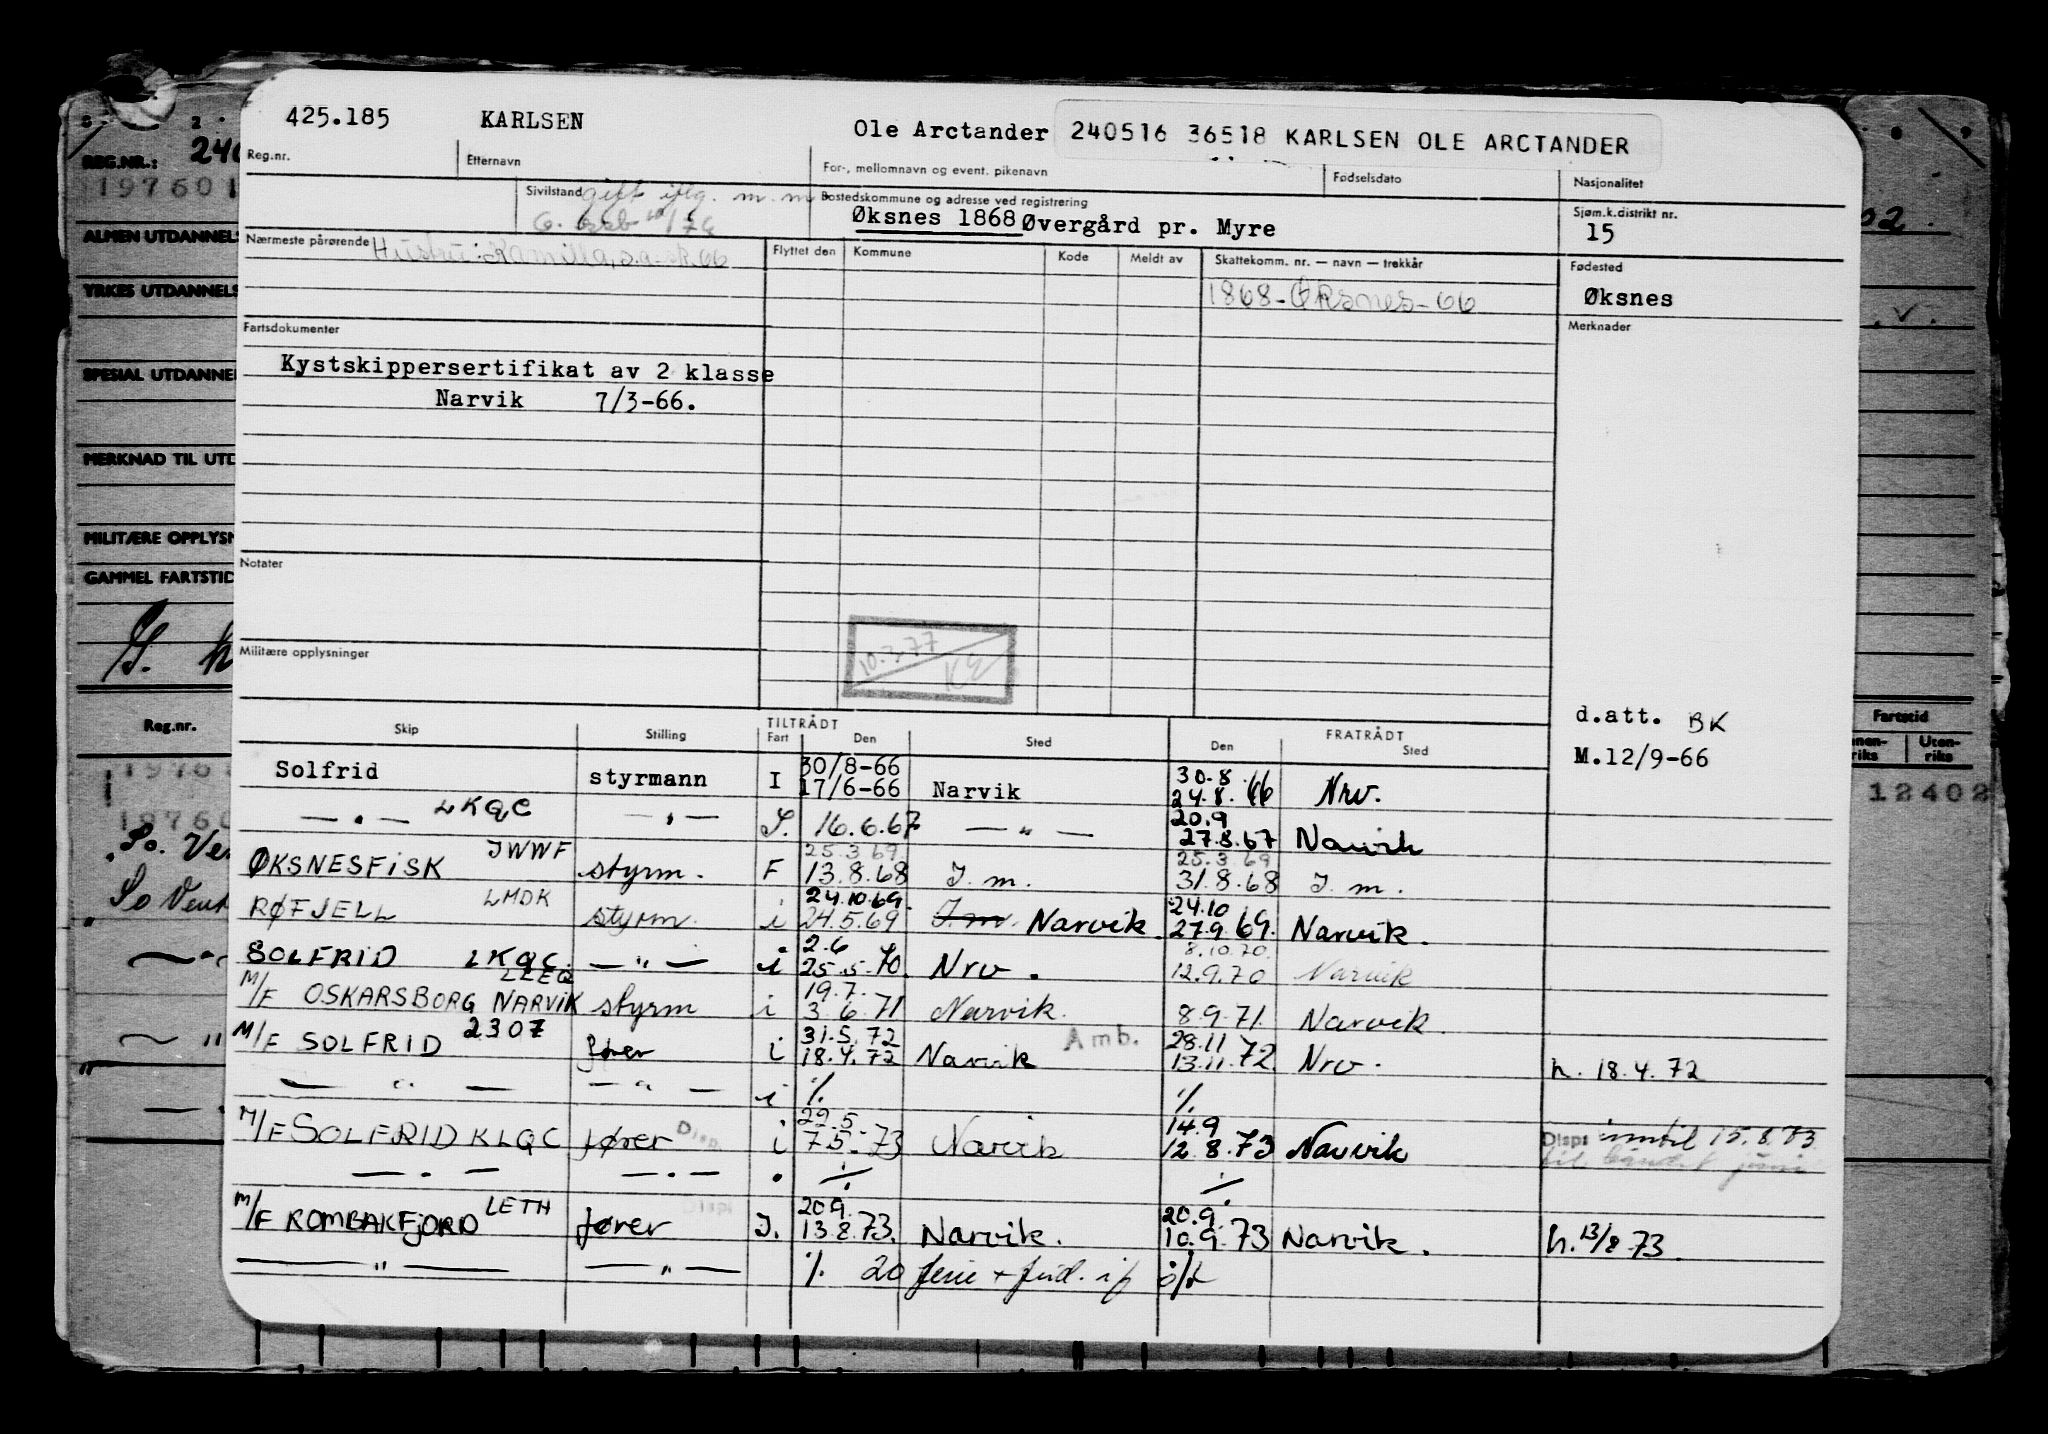 425.185 KARLSEN Ole Arctander 240516 36518 KARLSEN OLE ARCTANDER
Reg.nr. Etternavn For-, mellomnavn og event. pikenavn Fødselsdato Nasjonalitet
Sivilstand gift Bostedskommune og adresse ved registrering Sjøm.k.distrikt nr.
Øksnes 1868 Øvergård pr. Myre 15
Nærmeste pårørende Hustru: Kamilla, s.a. Flyttet den Kommune Kode Meldt av Skattekomm. nr. — navn — trekkår Fødested
1868-Øksnes-66 Øksnes
Fartsdokumenter Merknader
Kystskippersertifikat av 2 klasse
Narvik 7/3-66.
Notater
10.3.77
Militære opplysninger
d.att. BK
M.12/9-66
TILTRÅDT FRATRÅDT
Skip Stilling Fart Den Sted Den Sted
30/8-66 30.8.66
Solfrid styrmann I 17/6-66 Narvik 24.8.66 Nrv.
20.9
— " — LKQC — " — S. 16.6.67 — " — 27.8.67 Narvik
25.3.69 25.3.69
ØKSNESFISK JWWF styrm. F 13.8.68 J.m. 31.8.68 J.m.
24.10.69. 24.10
RØFJELL LMDK styrm. i 24.5.69 J.m. Narvik. 27.9.69. Narvik.
2.6 8.10.70.
SOLFRID LKQC — " — i 25.5.70. Nrv. 12.9.70 Narvik
LEEQ 19.7.
M/F OSKARSBORG NARVIK styrm i 3.6.71 Narvik. 8.9.71. Narvik.
31.5.72 Amb. 28.11
M/F SOLFRID 2307 fører i 18.4.72 Narvik 13.11.72. Nrv. h. 18.4.72
— " — — " — i % %
22.5. 14.9
M/F SOLFRID KLQC fører Disp. i 7.5.73 Narvik 12.8.73 Narvik Disp inntil 15.8.73
— " — — " — " % %
20.9. 20.9.
M/F ROMBAKFJORD LETH fører Disp J. 13.8.73. Narvik. 10.9.73 Narvik. h. 13/8-73.
— " — — " — % 20 ferie + frid. i/
REG.NR.:
197601
ALMEN UTDANNELS
YRKES UTDANNELS
SPESIAL UTDANNEL
MERKNAD TIL UTD
MILITÆRE OPPLYSN
GAMMEL FARTSTID
Reg.nr.
Fartstid
Uten-
riks
12402